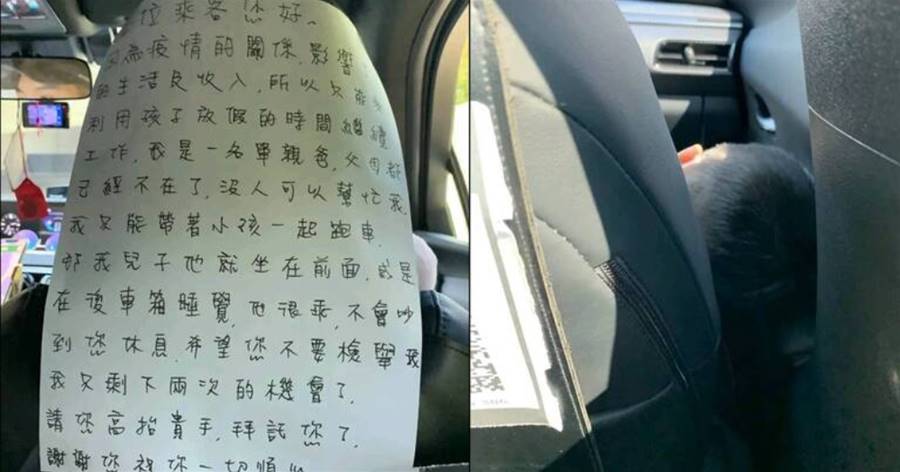 位乘客您好、
因為疫情的關係,影響
的生活及收入,所以只能
利用孩子放假的時間繼續
工作,我是一名單親爸,父母都
已經不在了,沒人可以幫忙我,
我只能帶著小孩一起跑車,
部我兒子他就坐在前面,或是
在後車箱睡覺,他很乖,不會吵
到您休息,希望您不要檢舉我
我只剩下兩次的機會了,
請您高抬貴手,拜託您了,
謝謝您祝您一切順心